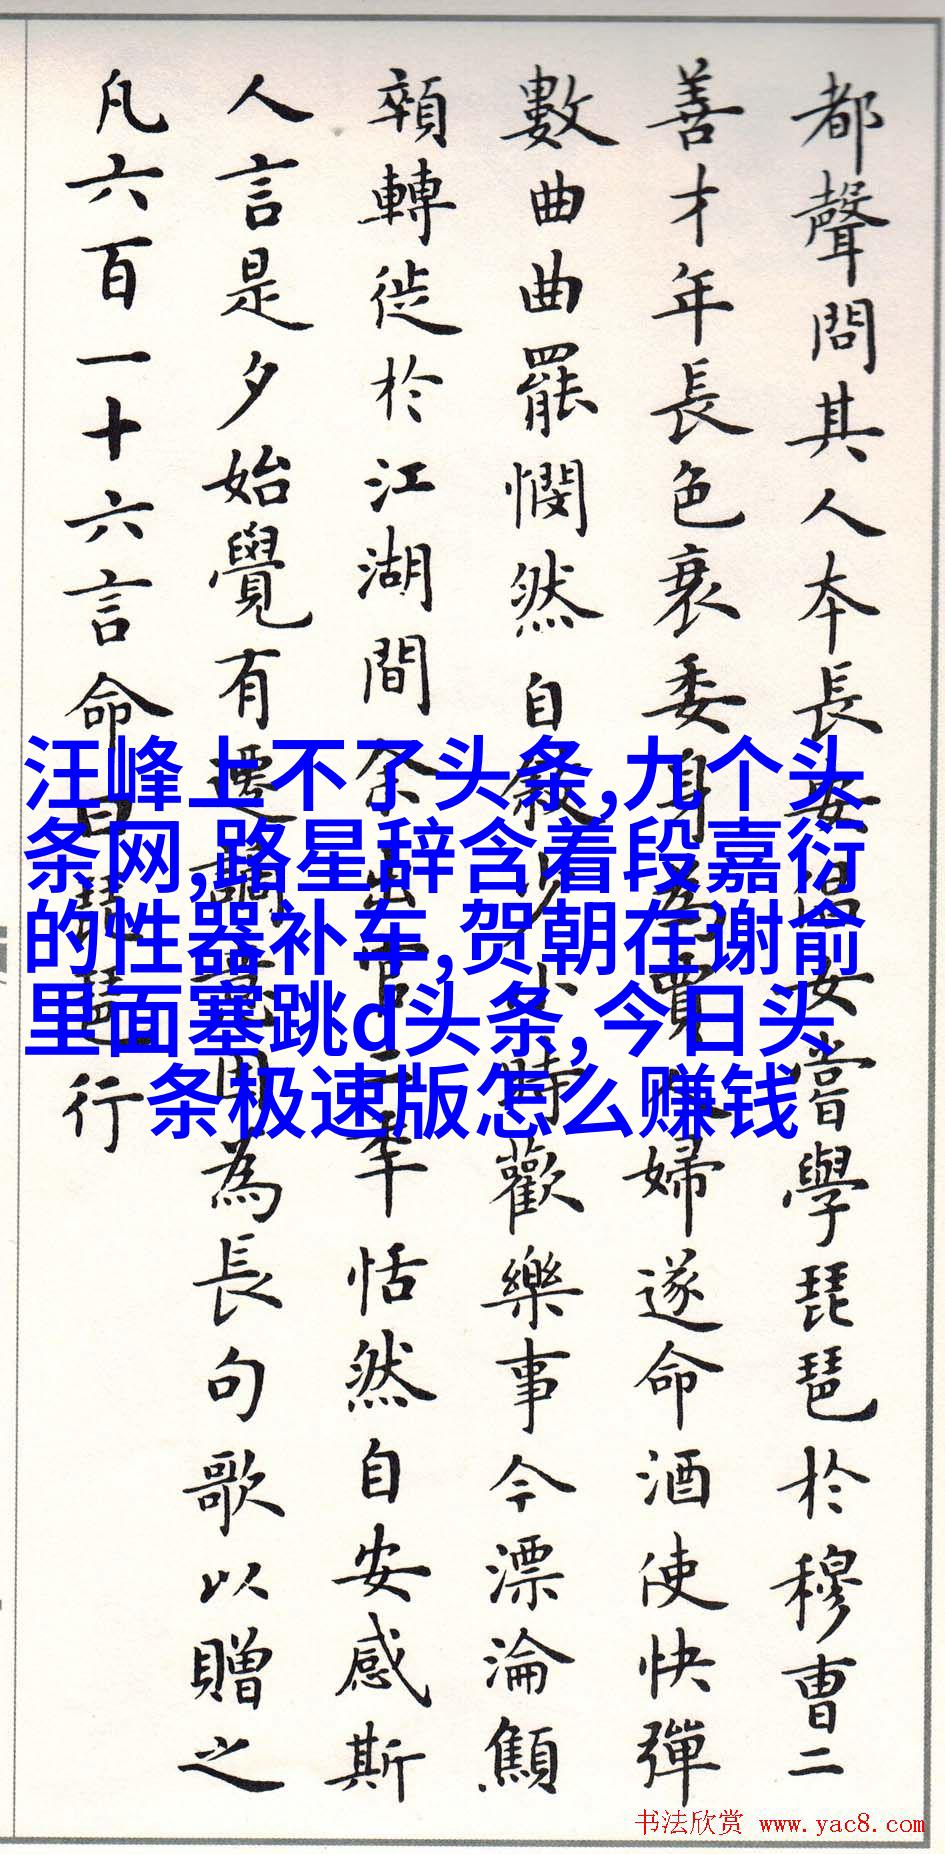 都聲問其人本長安倡女嘗學琵琶於穆曹二
善才年長色衰委身為賈人婦遂命酒使快彈
數曲曲罷憫然自敘少小時歡樂事今漂淪顦
顇轉徙於江湖間余出官二年恬然自安感斯
人言是夕始覺有遷謫意因為長句歌以贈之
凡六百一十六言命曰琵琶行
汪峰上不了头条,九个头
条网,路星辞含着段嘉衍
的性器补车,贺朝在谢俞
里面塞跳d头条,今日头
条极速版怎么赚钱
书法欣赏 www.yac8.com